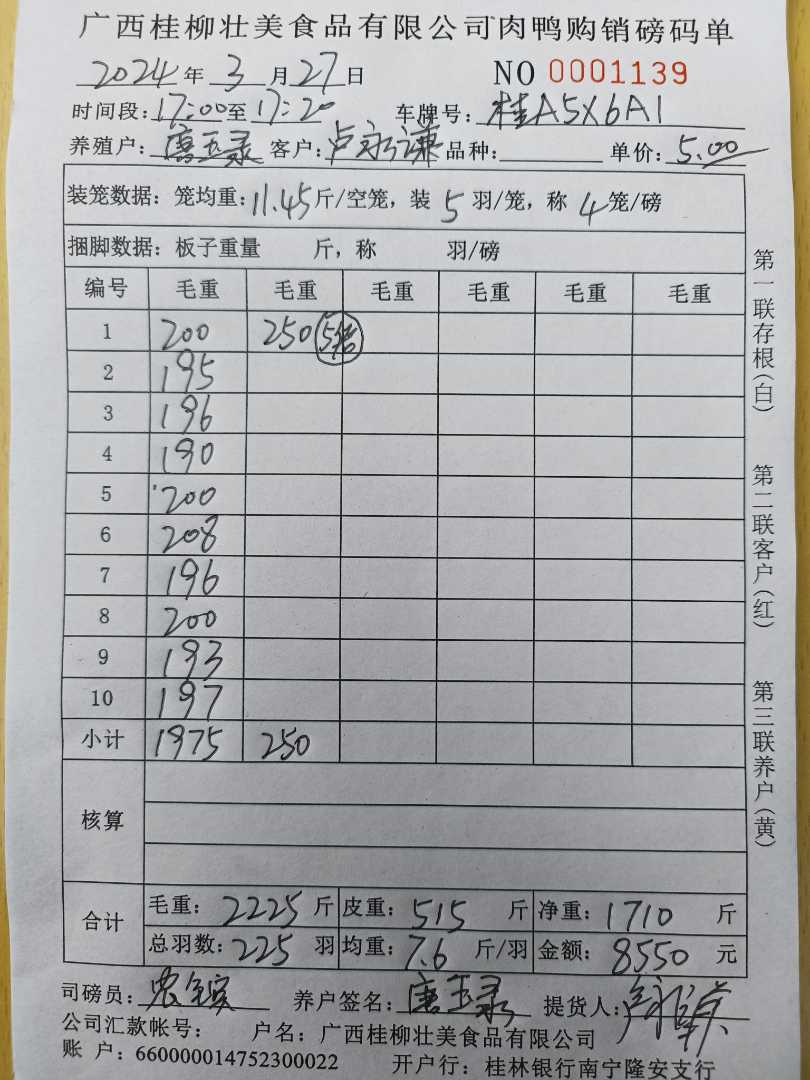 广西桂柳壮美食品有限公司肉鸭购销磅码单
2024年3月27日 NO 0001139
时间段:17:00至17:20 车牌号:桂A5X6A1
养殖户:唐玉录 客户:卢永谦 品种: 单价:5.00
装笼数据:笼均重:11.45斤/空笼,装5羽/笼,称4笼/磅
捆脚数据:板子重量 斤,称 羽/磅
编号 毛重 毛重 毛重 毛重 毛重 毛重
1 200 250 5笼
2 195
3 196
4 190
5 200
6 208
7 196
8 200
9 193
10 197
小计 1975 250
核算
合计 毛重:2225斤 皮重:515斤 净重:1710斤
总羽数:225羽 均重:7.6斤/羽 金额:8550元
司磅员: 养户签名:唐玉录 提货人:
公司汇款帐号: 户名:广西桂柳壮美食品有限公司
账 户:660000014752300022 开户行:桂林银行南宁隆安支行
第一联存根(白) 第二联客户(红) 第三联养户(黄)